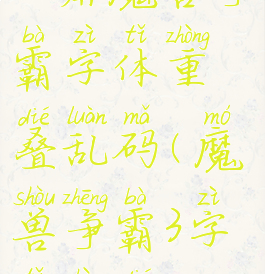 bà zì tǐ zhòng
霸字体重
dié luàn mǎ mó
叠乱码(魔
shòu zhēng bà zì
兽争霸3字